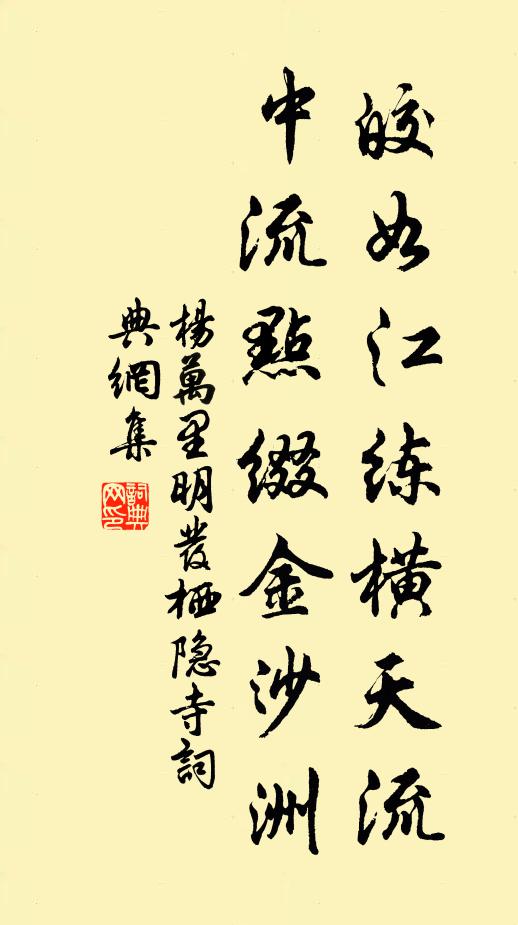 皎如江练横天流
中流點缀金沙洲
楊萬里明發栖隐寺詞
典網集
詞典网印